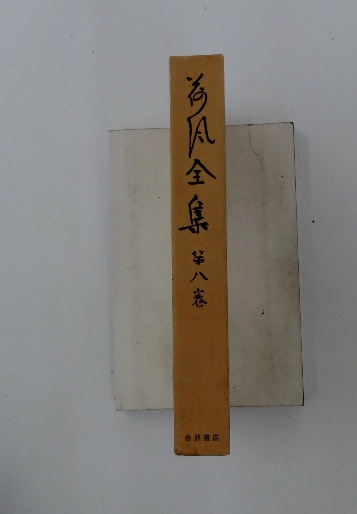 荷風全集
第八巻
岩波書店